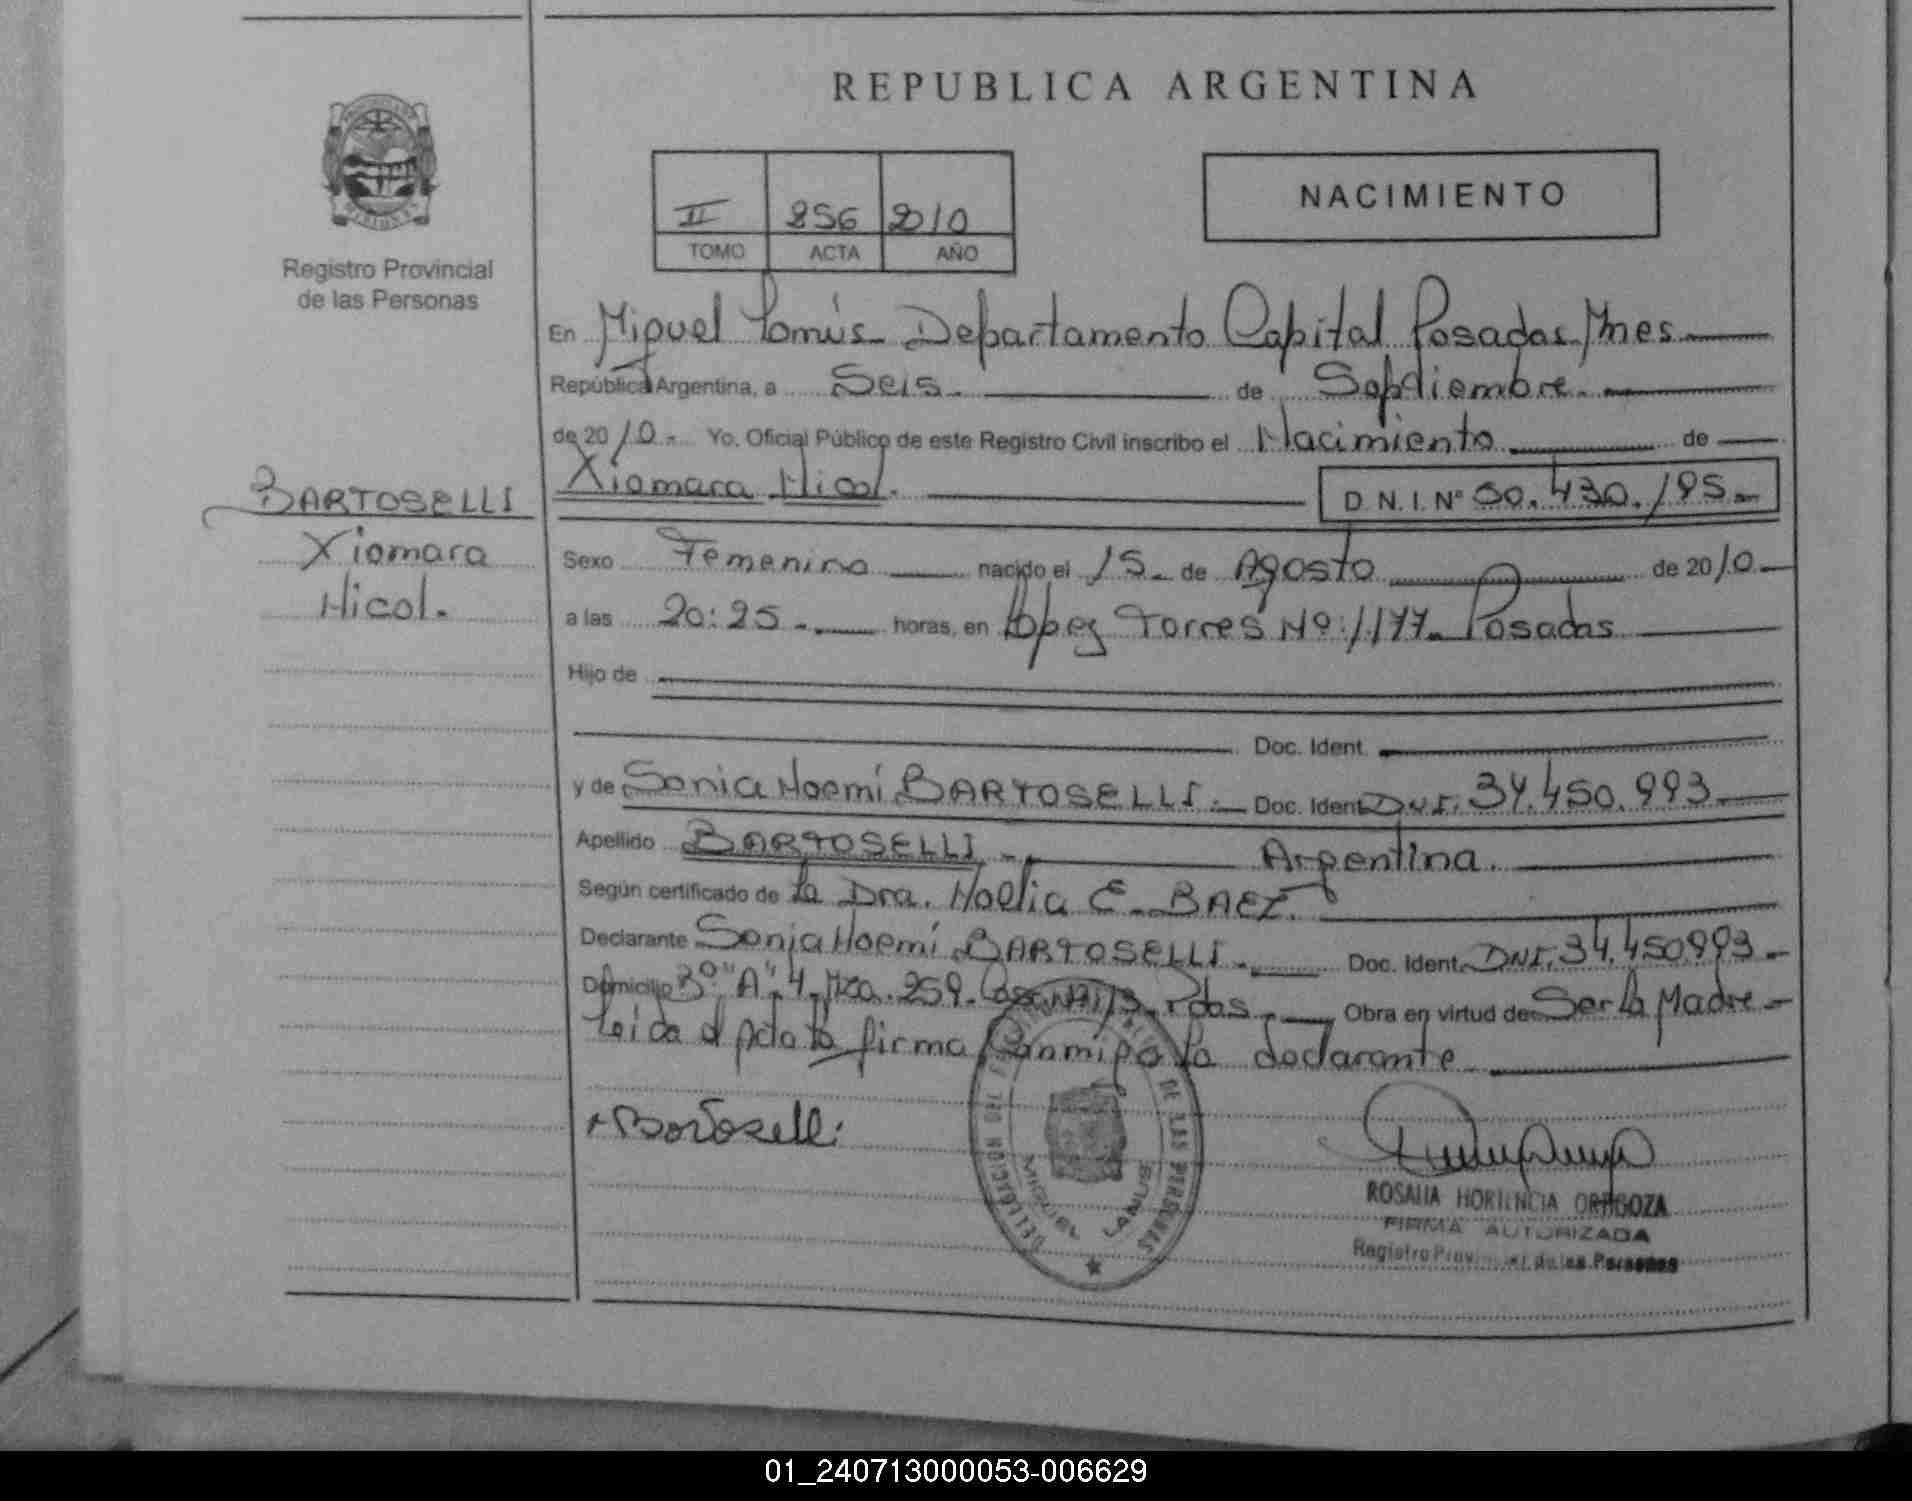 REPUBLICA ARGENTINA
II 256 2010
TOMO ACTA AÑO
NACIMIENTO
Registro Provincial
de las Personas
En Miguel Lanús Departamento Capital Posadas Mnes
República Argentina, a Seis. de Septiembre.
de 2010. Yo. Oficial Público de este Registro Civil inscribo el Nacimiento de
Xiomara Nicol. D.N.I. Nº 50.430.195.
BARTOSELLI
Xiomara
Nicol.
Sexo Femenino nacido el 15 de Agosto de 2010
a las 20:25 horas, en López Torres Nº 1177 Posadas
Hijo de
Doc. Ident.
y de Sonia Noemí BARTOSELLI. Doc. Ident. DNI. 34.450.993
Apellido BARTOSELLI Argentina.
Según certificado de la Dra. Noelia E. BAEZ.
Declarante Sonia Noemí BARTOSELLI. Doc. Ident. DNI. 34.450993
Domicilio "A" 4 Mza. 259 Casa Pdas Obra en virtud de Ser la Madre
Leída el Acta la firma la declarante
Bartoselli
DELEGACION DE LAS PERSONAS
MIGUEL LANUS
ROSALIA HORTENCIA ORTEGOZA
FIRMA AUTORIZADA
Registro Provincial de las Personas
01_240713000053-006629